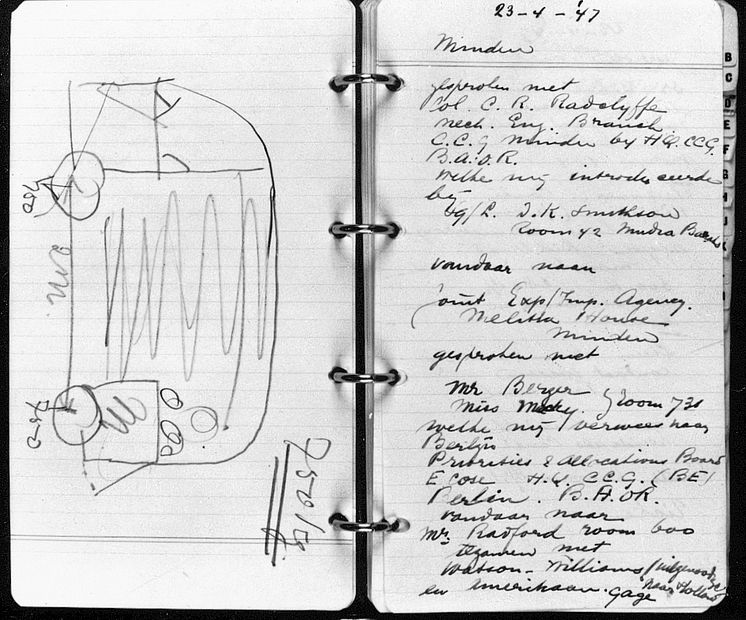 750
2 m.
750
750 kg
23-4-'47
Minden
gesproken met
Col. C. R. Radclyffe
Mech. Eng. Branch
C.C.G Minden by H.Q. CCG.
B.A.O.R.
welke mij introduceerde
bij
I. K. Smithson
Room 42 Mudra
vandaar naar
Joint Exp/Imp. Agency.
Melitta House
Minden
gesproken met
Mr Berger
Miss Room 731
welke mij verwees naar
Berlijn
Priorities & Allocations Board
H.Q. C.C.G. (BE)
Berlin. B.A.O.R.
vandaar naar
Mr. Radford room 600
tezamen met
Watson-Williams
naar Holland
en Amerikaan. Gage
B
C
D
E
F
G
H